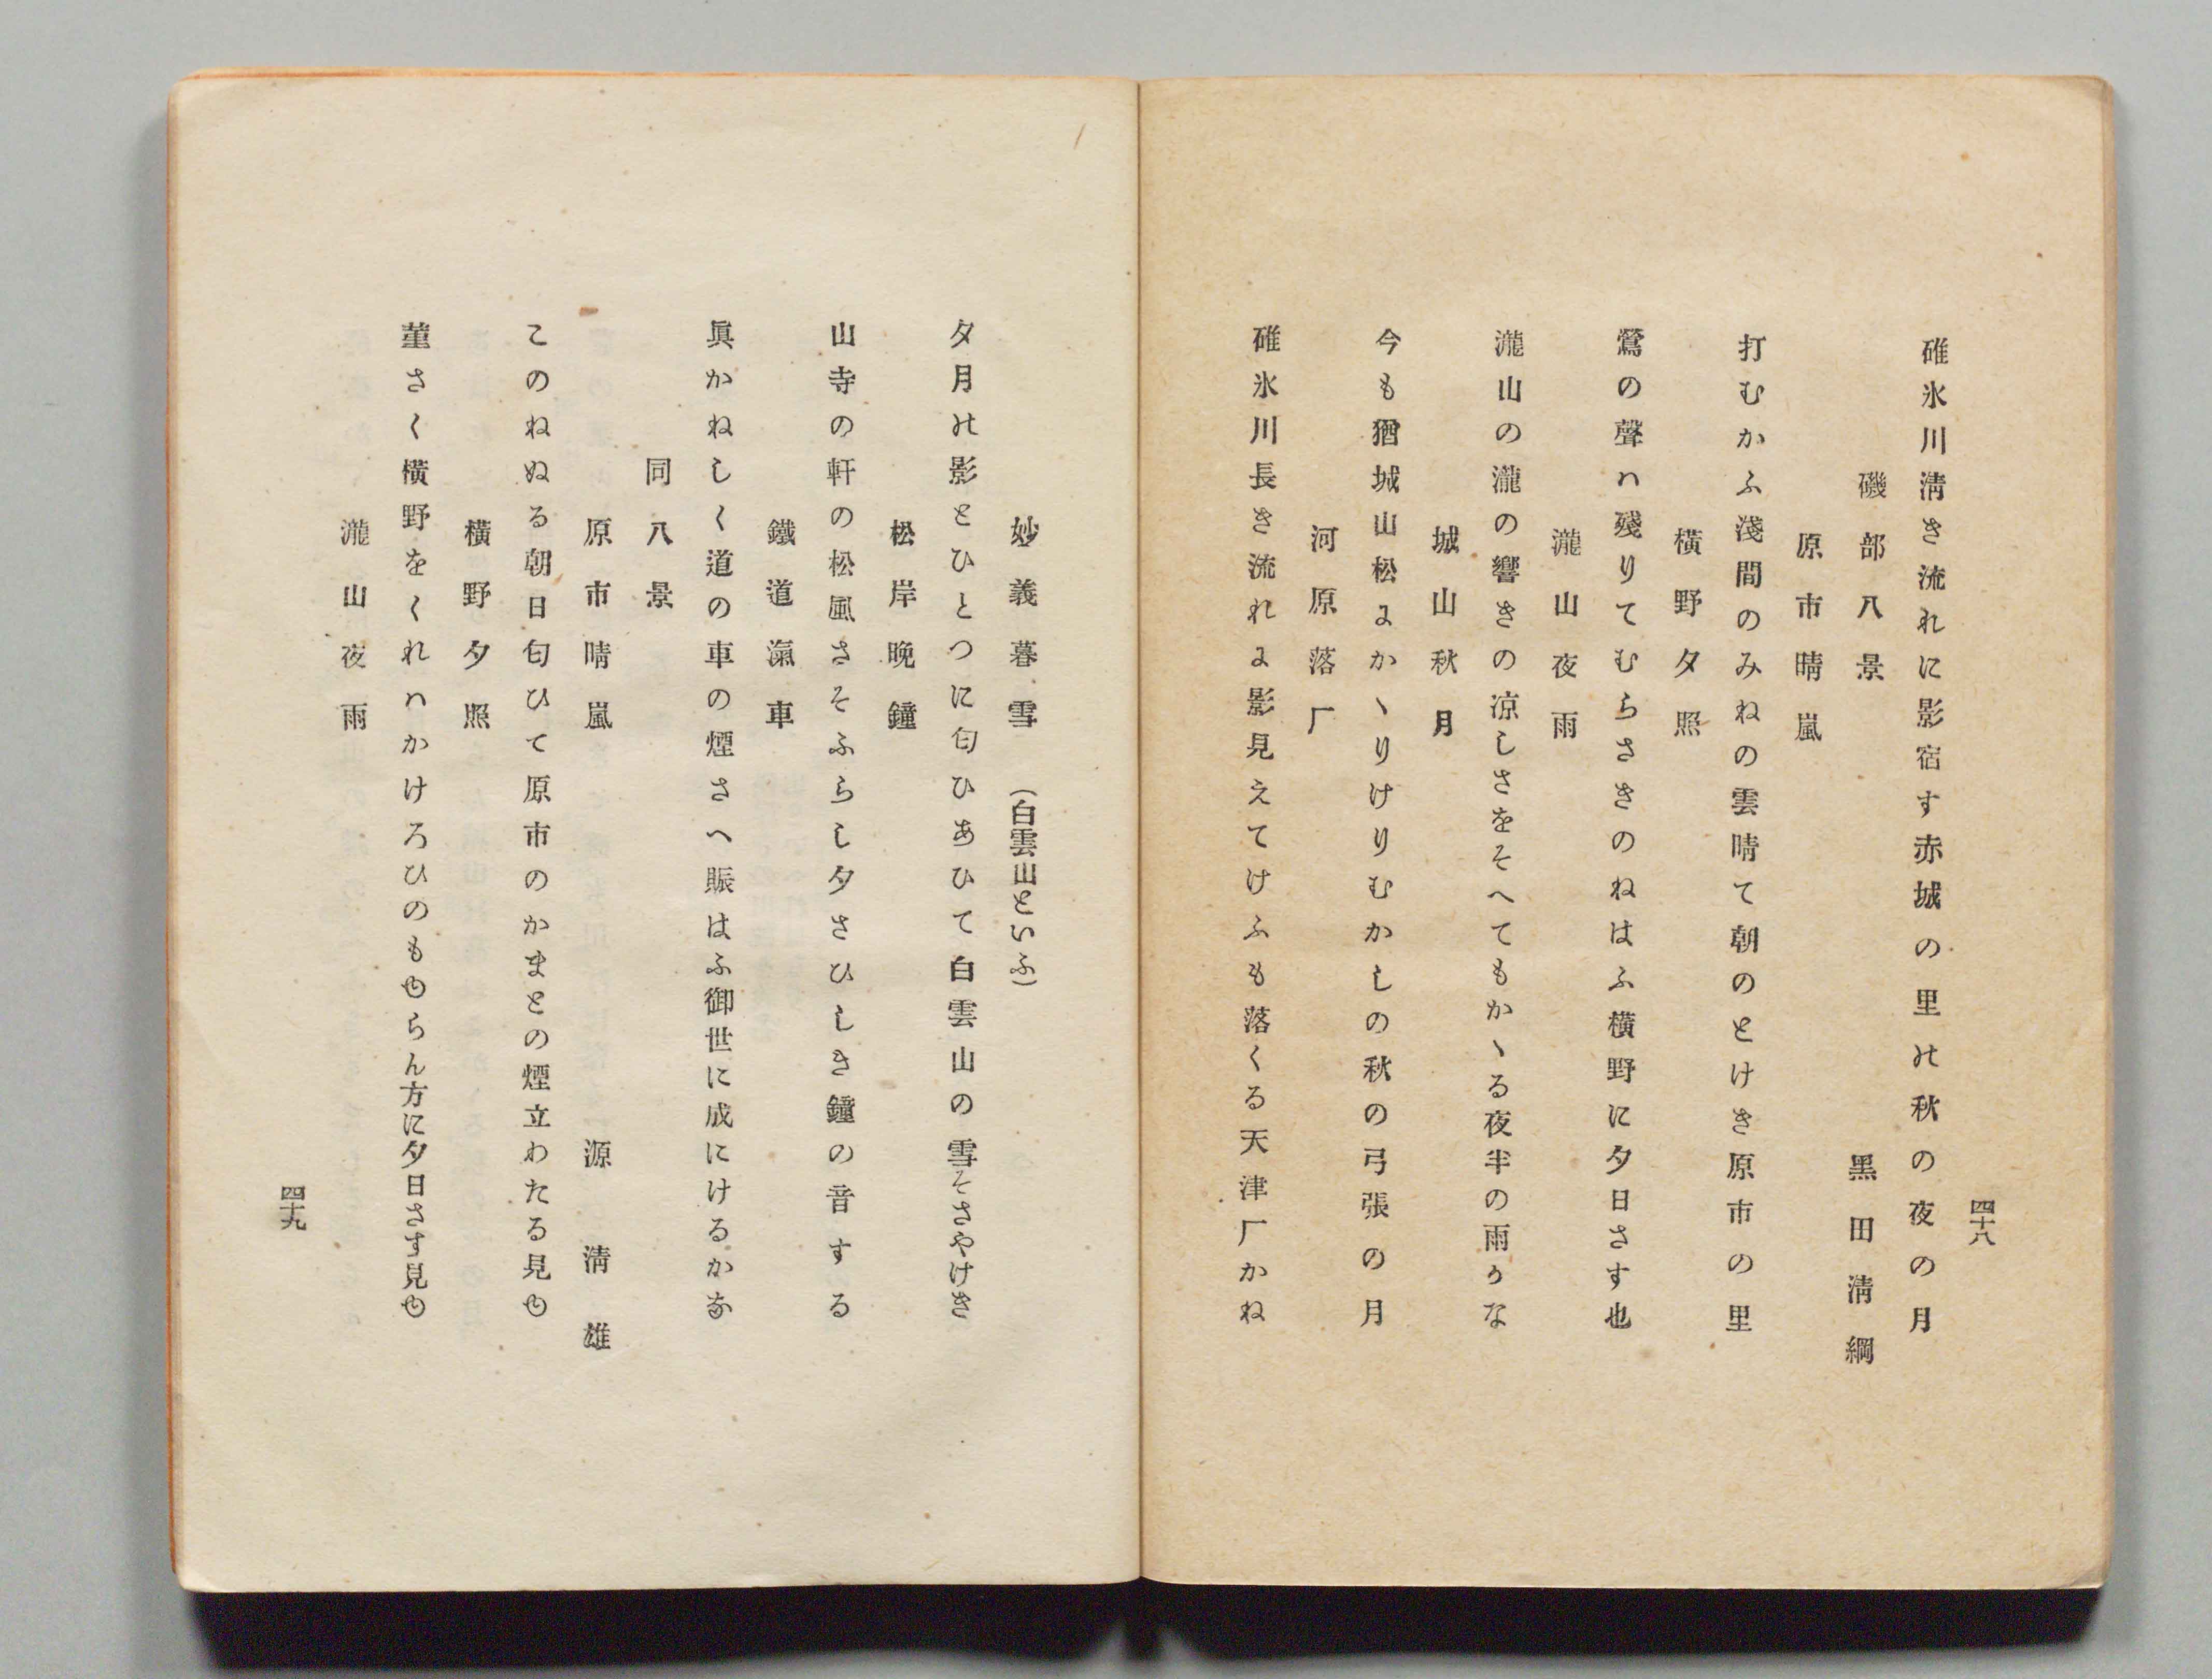 四十八
碓氷川淸き流れに影宿す赤城の里の秋の夜の月
磯部八景
黑田淸綱
原市晴嵐
打むかふ淺間のみねの雲晴て朝のとけき原市の里
橫野夕照
鶯の聲ハ殘りてむらさきのねはふ橫野に夕日さす也
瀧山夜雨
瀧山の瀧の響きの凉しさをそへてもかゝる夜半の雨うな
城山秋月
今も猶城山松にかゝりけりむかしの秋の弓張の月
河原落厂
碓氷川長き流れに影見えてけふも落くる天津厂かね
妙義暮雪（白雲山といふ）
夕月の影とひとつに匂ひあひて白雲山の雪そさやけき
松岸晚鐘
山寺の軒の松風さそふらし夕さひしき鐘の音する
鐵道滊車
眞かねしく道の車の煙さへ賑はふ御世に成にけるかな
同八景
原市晴嵐
源淸雄
このねぬる朝日匂ひて原市のかまとの煙立わたる見ゆ
橫野夕照
菫さく橫野をくれハかけろひのもゆらん方に夕日さす見ゆ
瀧山夜雨
四十九